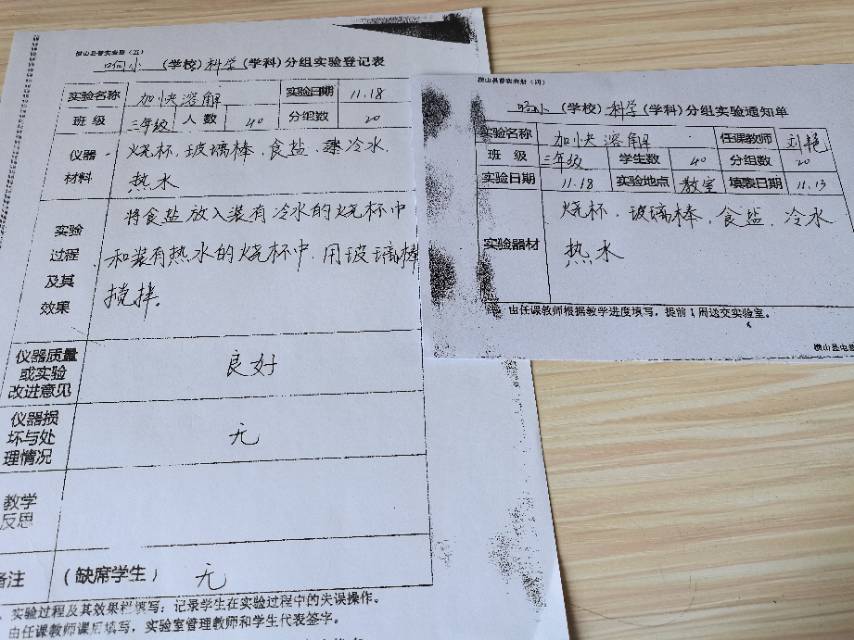 横山县普实表册（五）
响小（学校）科学（学科）分组实验登记表
实验名称 加快溶解 实验日期 11.18
班 级 三年级 人 数 40 分组数 20
仪器
材料
烧杯、玻璃棒、食盐、冷水、
热水
实验
过程
及其
效果
将食盐放入装有冷水的烧杯中
和装有热水的烧杯中，用玻璃棒
搅拌。
仪器质量
或实验
改进意见
良好
仪器损
坏与处
理情况
无
教学
反思
备注 （缺席学生） 无
实验过程及其效果栏填写：记录学生在实验过程中的失误操作。
由任课教师课后填写，实验室管理教师和学生代表签字。
横山县普实表册（四）
响小（学校）科学（学科）分组实验通知单
实验名称 加快溶解 任课教师 刘艳
班 级 三年级 学生数 40 分组数 20
实验日期 11.18 实验地点 教室 填表日期 11.13
实验器材
烧杯、玻璃棒、食盐、冷水
热水
由任课教师根据教学进度填写，提前1周送交实验室。
横山县电